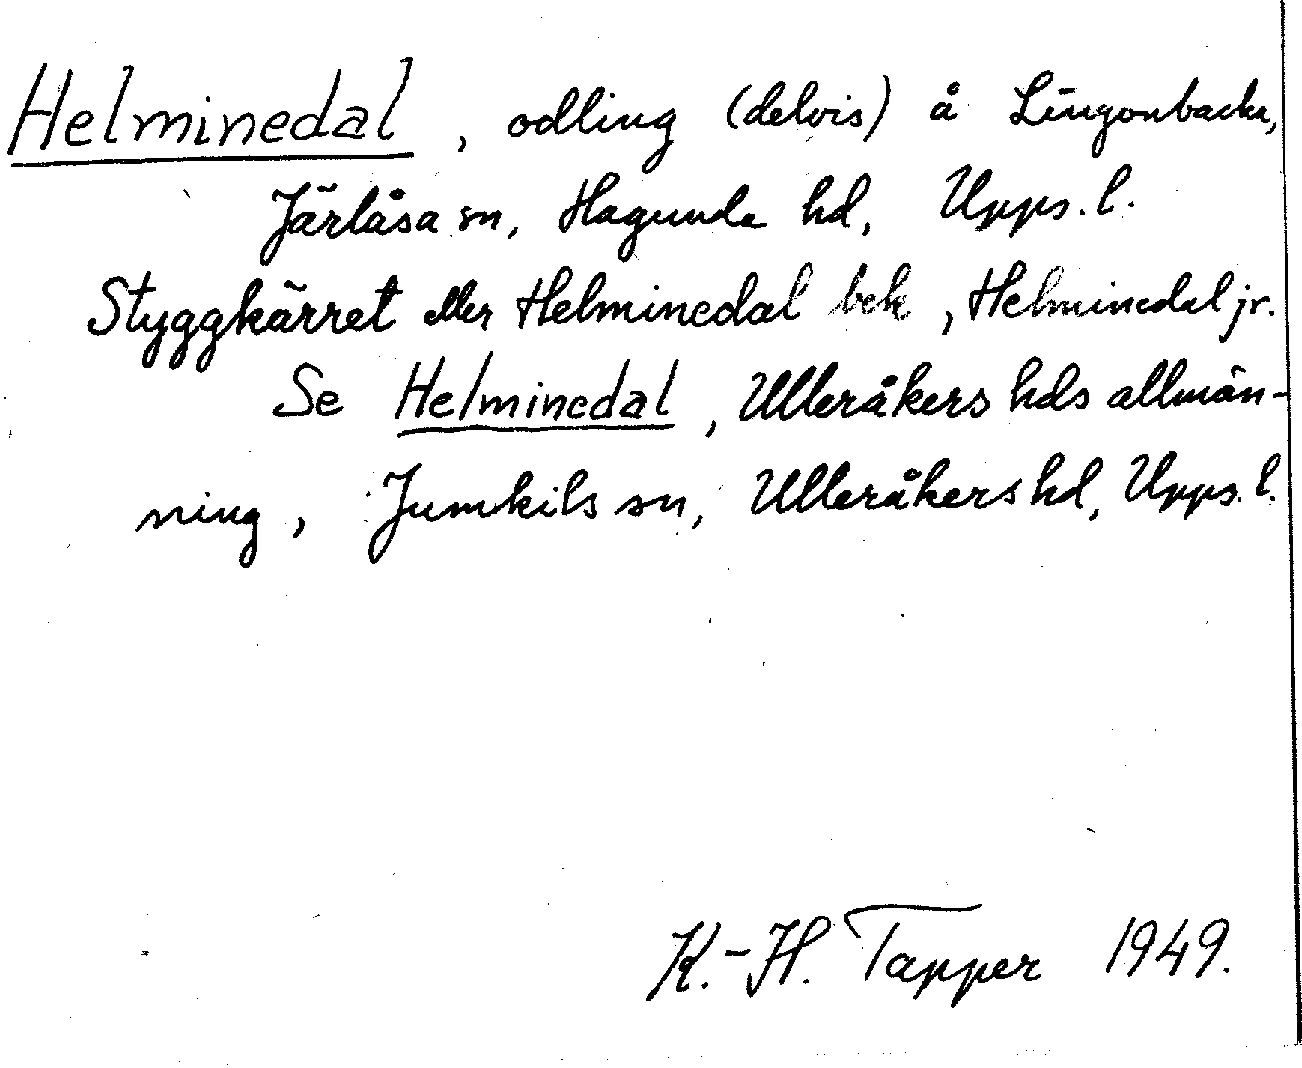 Helminedal, odling (delvis) å Lingonbacka,
Järlåsa sn, Hagunda hd, Upps. l.
Styggkärret eller Helminedal bek, Helminedal jr.
Se Helminedal, Ulleråkers hds allmän-
ning, Jumkils sn, Ulleråkers hd, Upps. l.
K.-H. Tapper 1949.